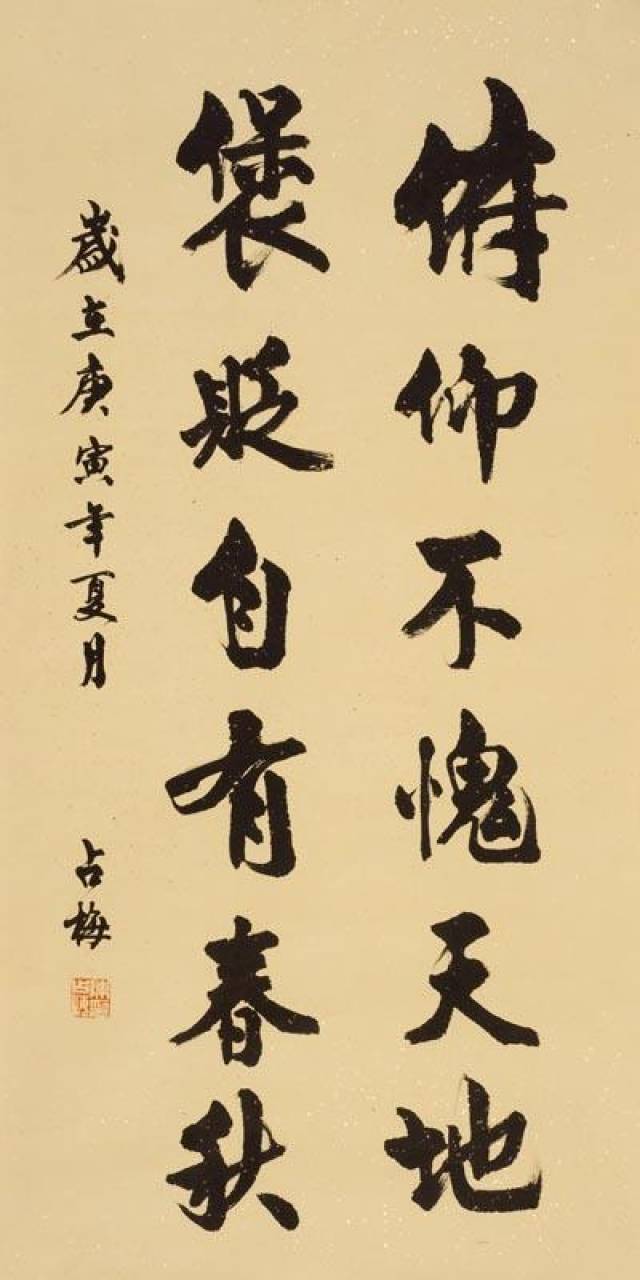 俯仰不愧天地
褒贬自有春秋
岁在庚寅年夏月
占梅